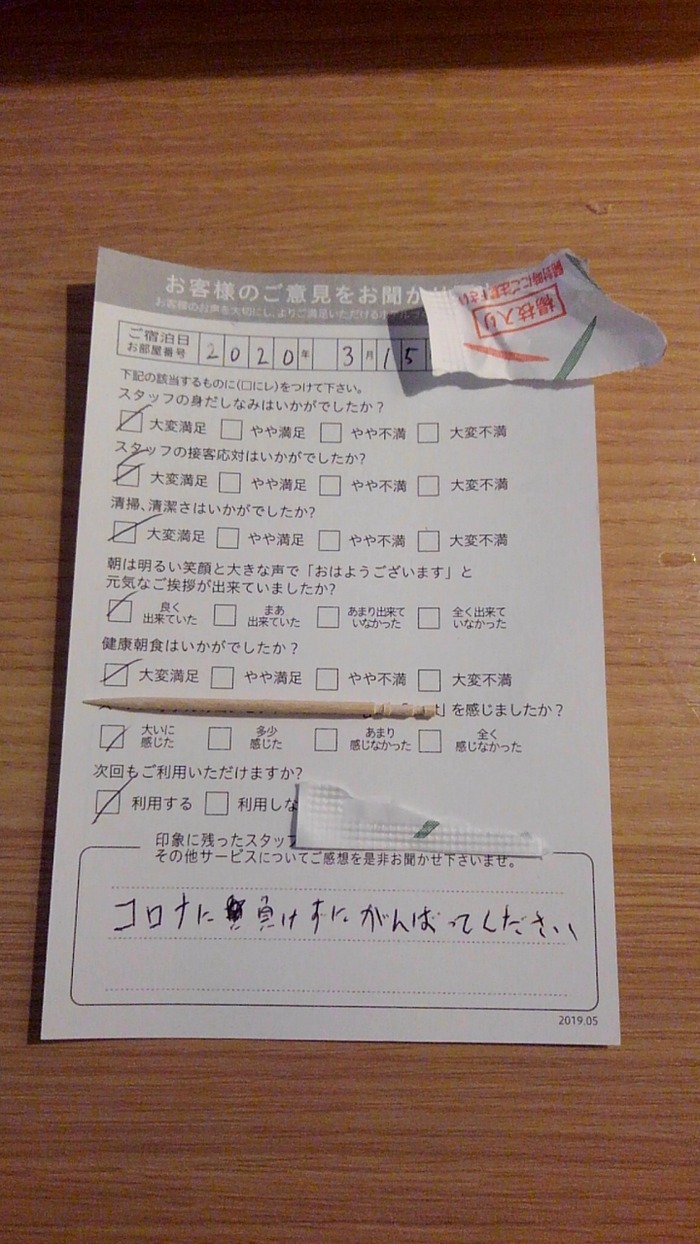 お客様のご意見をお聞か
お客様の声を大切にし、よりご満足いただける
開封時にご注意下さい
楊枝入り
ご宿泊日
お部屋番号
2020年 3月15
下記の該当するものに(□にレ)をつけて下さい。
スタッフの身だしなみはいかがでしたか？
大変満足 やや満足 やや不満 大変不満
スタッフの接客応対はいかがでしたか?
大変満足 やや満足 やや不満 大変不満
清掃、清潔さはいかがでしたか?
大変満足 やや満足 やや不満 大変不満
朝は明るい笑顔と大きな声で「おはようございます」と
元気なご挨拶が出来ていましたか?
良く出来ていた まあ出来ていた あまり出来ていなかった 全く出来ていなかった
健康朝食はいかがでしたか？
大変満足 やや満足 やや不満 大変不満
」を感じましたか？
大いに感じた 多少感じた あまり感じなかった 全く感じなかった
次回もご利用いただけますか?
利用する 利用しな
印象に残ったスタッフ
その他サービスについてご感想を是非お聞かせ下さいませ。
コロナに負けずにがんばってください
2019.05